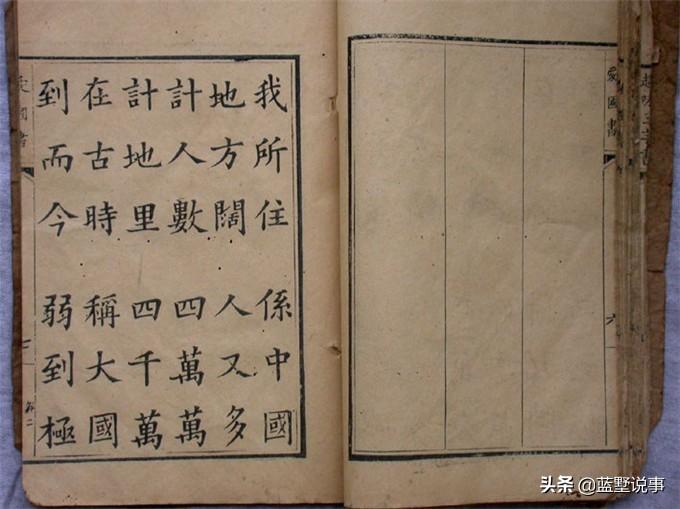 愛國書
六
我所住 係中國
地方闊 人又多
計人數 四萬萬
計地里 四千萬
在古時 稱大國
到而今 弱到極
头条 @蓝墅说事